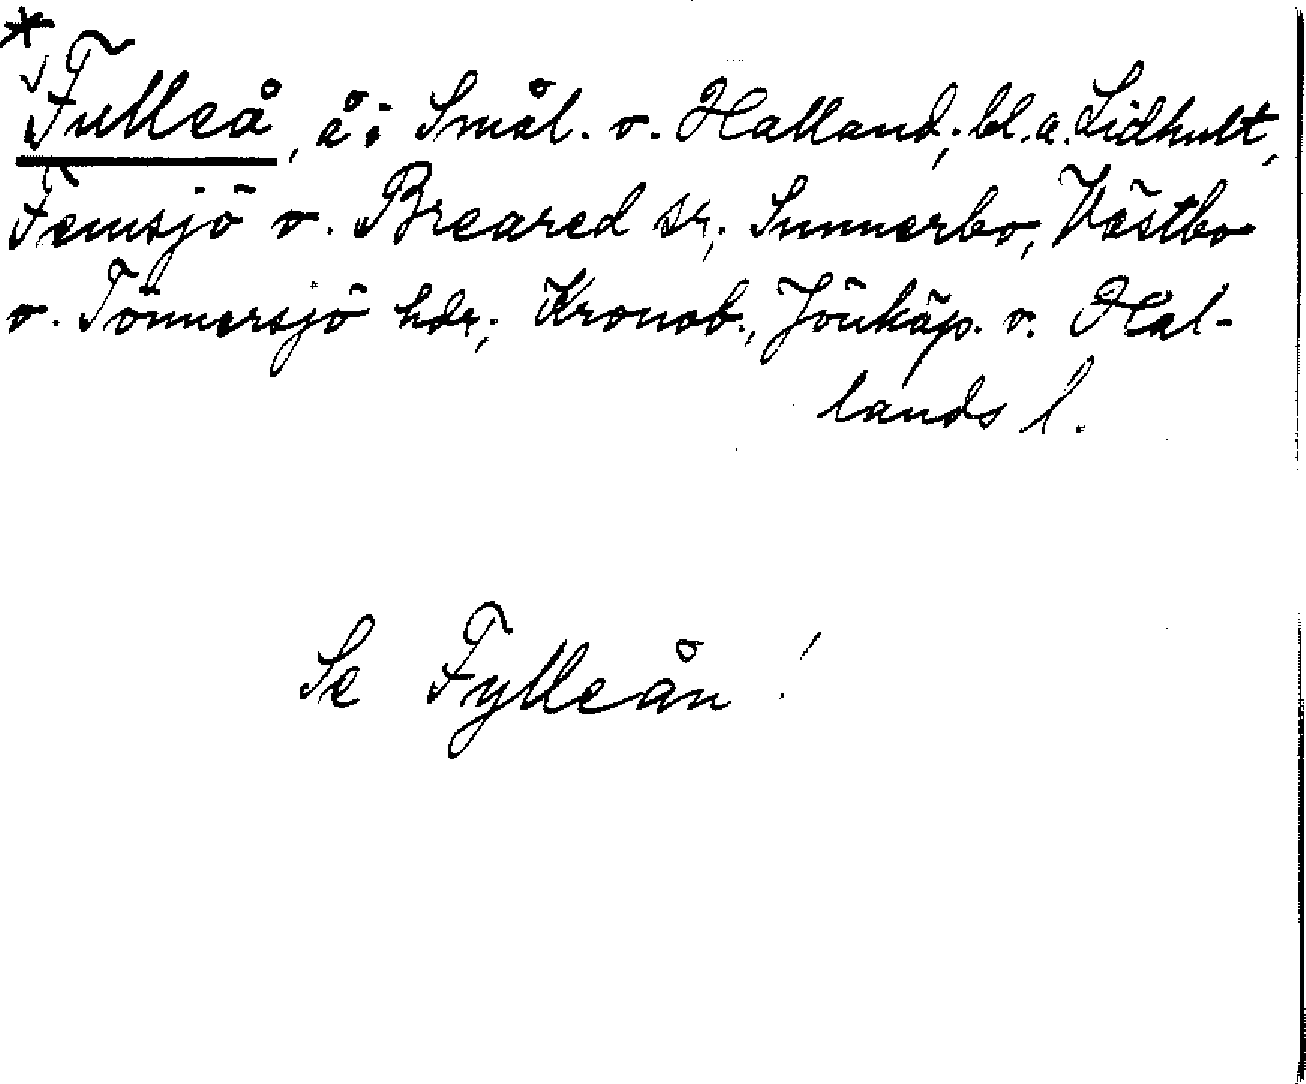 *
√Fulleå, å i Smål. o. Halland, bl. a. Lidhult,
Femsjö o. Breared sr, Sunnerbo, Västbo
o. Tönnersjö hdr, Kronob., Jönkäp. o. Hal-
lands l.
Se Fylleån!